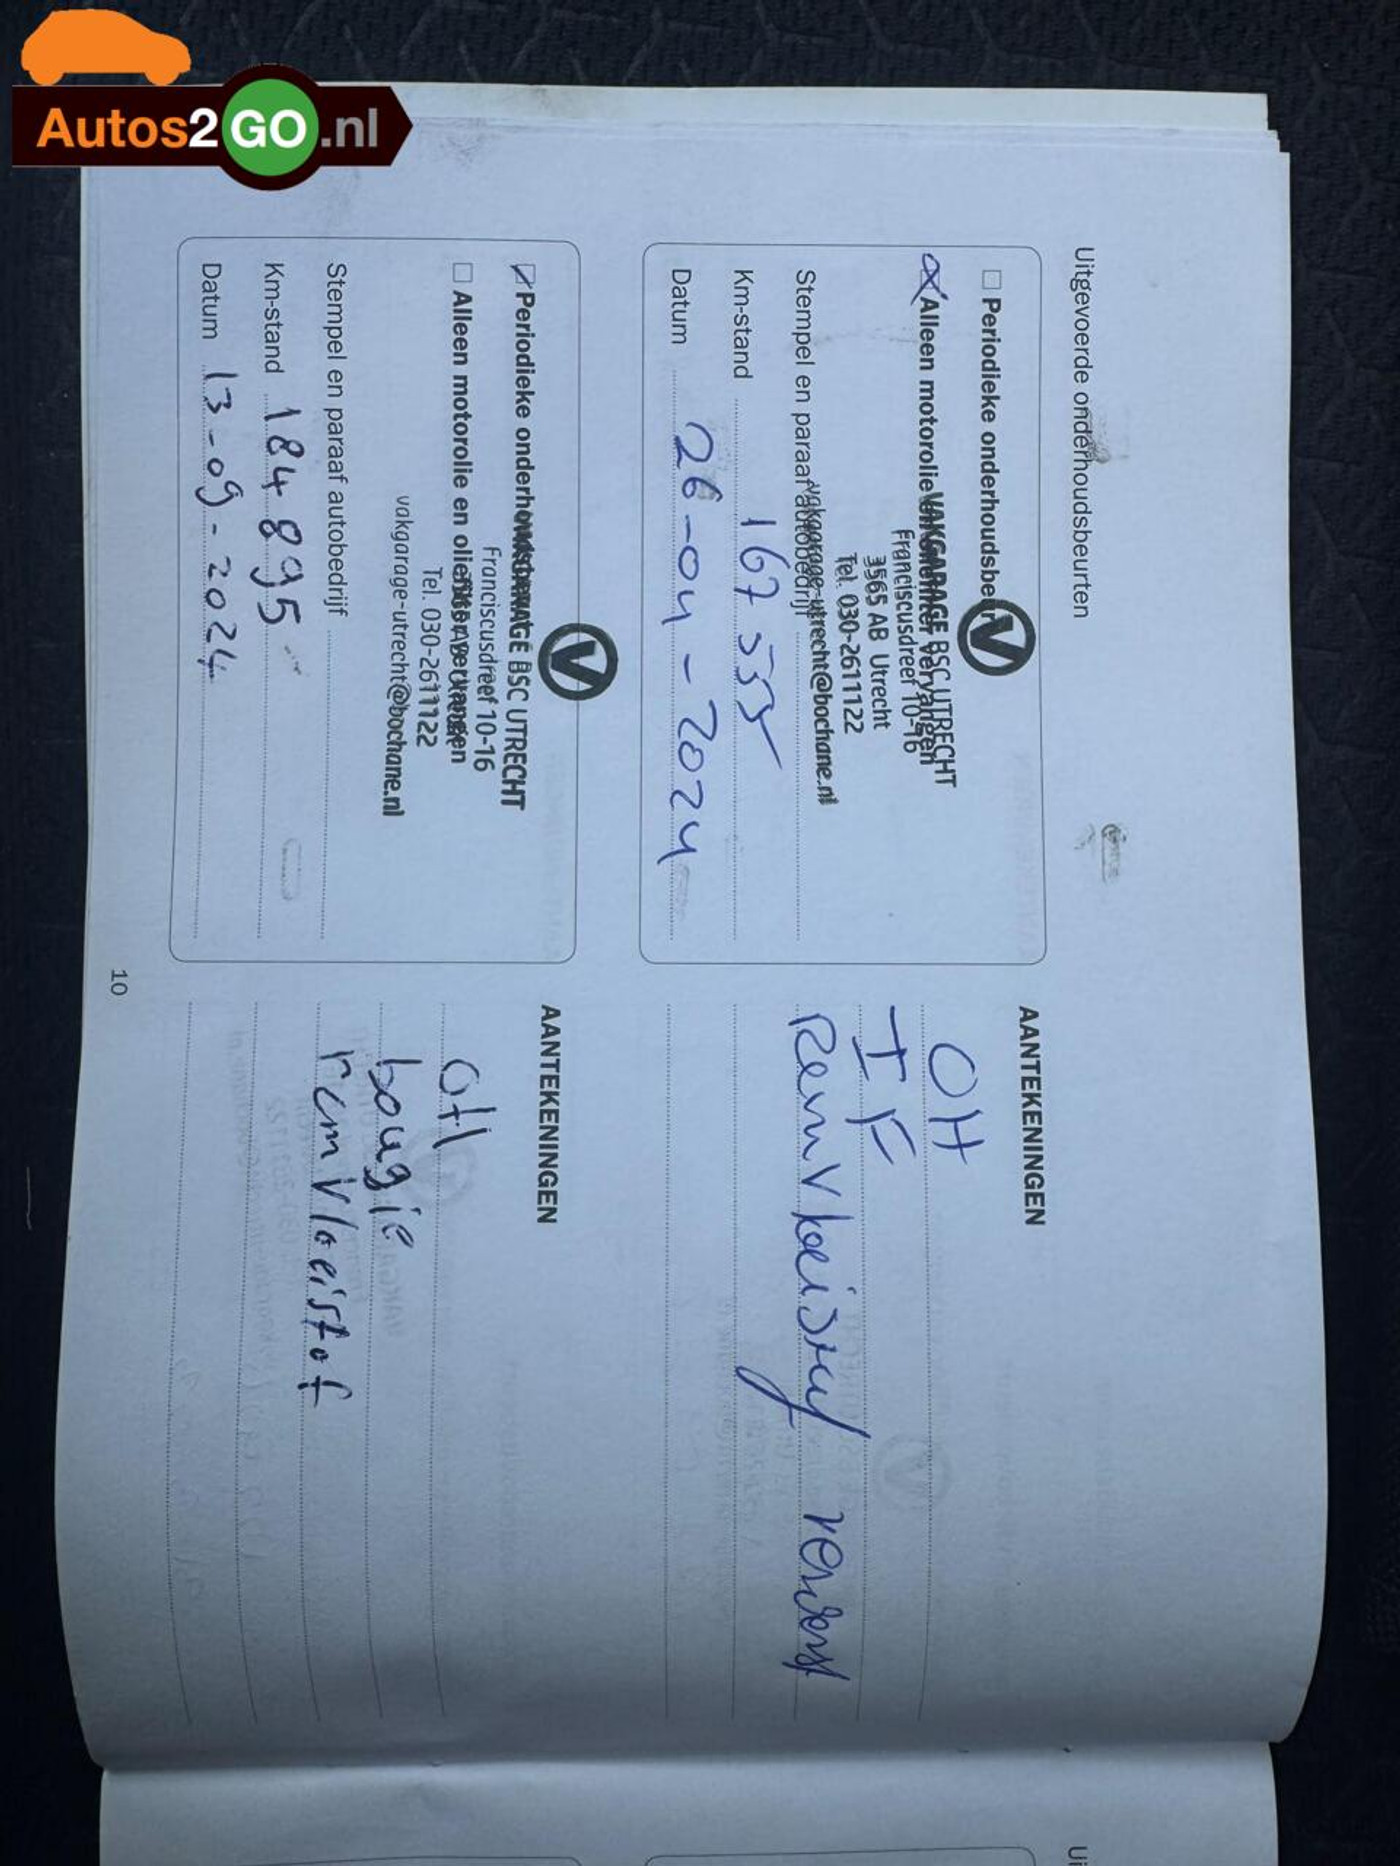 Autos2GO.nl
Uitgevoerde onderhoudsbeurten
Periodieke onderhoudsbeurt
Alleen motorolie en oliefilter vervangen
VAKGARAGE BSC UTRECHT
Franciscusdreef 10-16
3565 AB Utrecht
Tel. 030-2611122
vakgarage-utrecht@bochane.nl
Stempel en paraaf autobedrijf
Km-stand 167 555
Datum 26-04-2024
AANTEKENINGEN
OH
IF
Periodieke onderhoudsbeurt
Alleen motorolie en oliefilter vervangen
VAKGARAGE BSC UTRECHT
Franciscusdreef 10-16
3565 AB Utrecht
Tel. 030-2611122
vakgarage-utrecht@bochane.nl
Stempel en paraaf autobedrijf
Km-stand 184 895
Datum 13-09-2024
AANTEKENINGEN
OH
bougie
remvloeistof
10